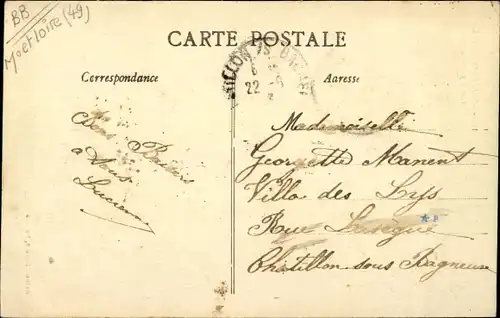 BB
M et Loire (49)
CARTE POSTALE
Correspondance
Adresse
22
Bons Baisers
a Tous
Lucienne
Mademoiselle
Georgette Manent
Villa des Lys
Rue Lasègue
Châtillon sous Bagneux